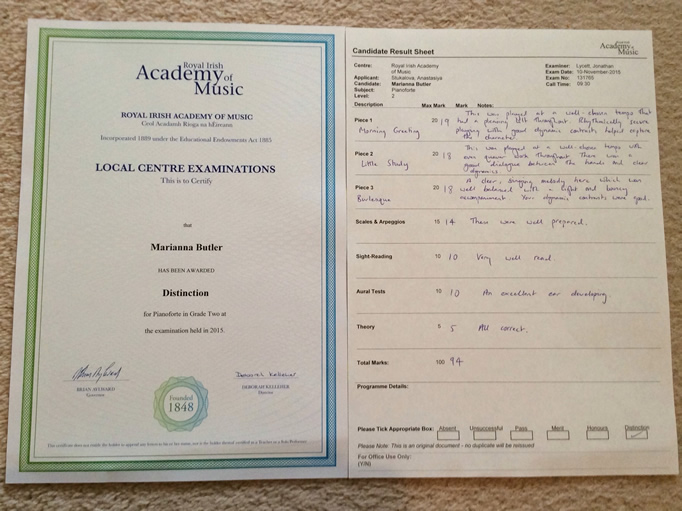 Royal Irish
Academy of
Music
ROYAL IRISH ACADEMY OF MUSIC
Ceol Acadamh Ríoga na hÉireann
Incorporated 1889 under the Educational Endowments Act 1885
LOCAL CENTRE EXAMINATIONS
This is to Certify
that
Marianna Butler
HAS BEEN AWARDED
Distinction
for Pianoforte in Grade Two at
the examination held in 2015.
Deborah Kelleher
BRIAN AYLWARD
Governor
DEBORAH KELLEHER
Director
Founded
1848
Candidate Result Sheet
Academy of
Music
Centre: Royal Irish Academy
of Music
Applicant: Stukalova, Anastasiya
Candidate: Marianna Butler
Subject: Pianoforte
Level: 2
Examiner: Lycett, Jonathan
Exam Date: 10-November-2015
Exam No: 131765
Call Time: 09:30
Description Max Mark Mark Notes:
Piece 1 20 19 This was played at a well-chosen tempo that
Morning Greeting had a dancing lilt throughout. Rhythmically secure
playing with good dynamic contrasts helped capture
the character.
Piece 2 20 18 This was played at a well-chosen tempo with
Little Study even quaver work throughout. There was a
good dialogue between the hands and clear
dynamics.
Piece 3 20 18 A clear, singing melody here which was
Burlesque well balanced with a light and bouncy
accompaniment. Your dynamic contrasts were good.
Scales & Arpeggios 15 14 These were well prepared.
Sight-Reading 10 10 Very well read.
Aural Tests 10 10 An excellent ear developing.
Theory 5 5 All correct.
Total Marks: 100 94
Programme Details:
Please Tick Appropriate Box: Absent Unsuccessful Pass Merit Honours Distinction
Please Note: This is an original document - no duplicate will be reissued
For Office Use Only:
(Y/N)